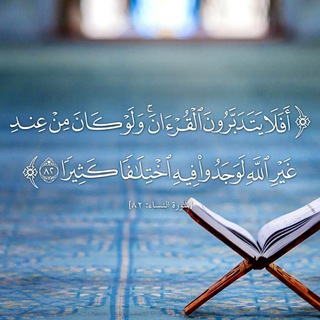 ﴿ أَفَلَا يَتَدَبَّرُونَ ٱلْقُرْءَانَ ۚ وَلَوْ كَانَ مِنْ عِندِ
غَيْرِ ٱللَّهِ لَوَجَدُوا۟ فِيهِ ٱخْتِلَٰفًا كَثِيرًا ٨٢ ﴾
[سورة النساء: ٨٢]